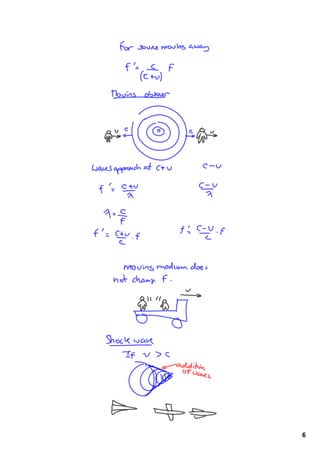 For source moving away
f' = c/(c+v) f
Moving observer
v c c v
waves approach at c+v c-v
f' = c+v/λ c-v/λ
λ = c/f
f' = c+v/c . f f' = c-v/c . f
Moving medium does
not change f.
v
Shock wave
If v > c
addition
of waves
6